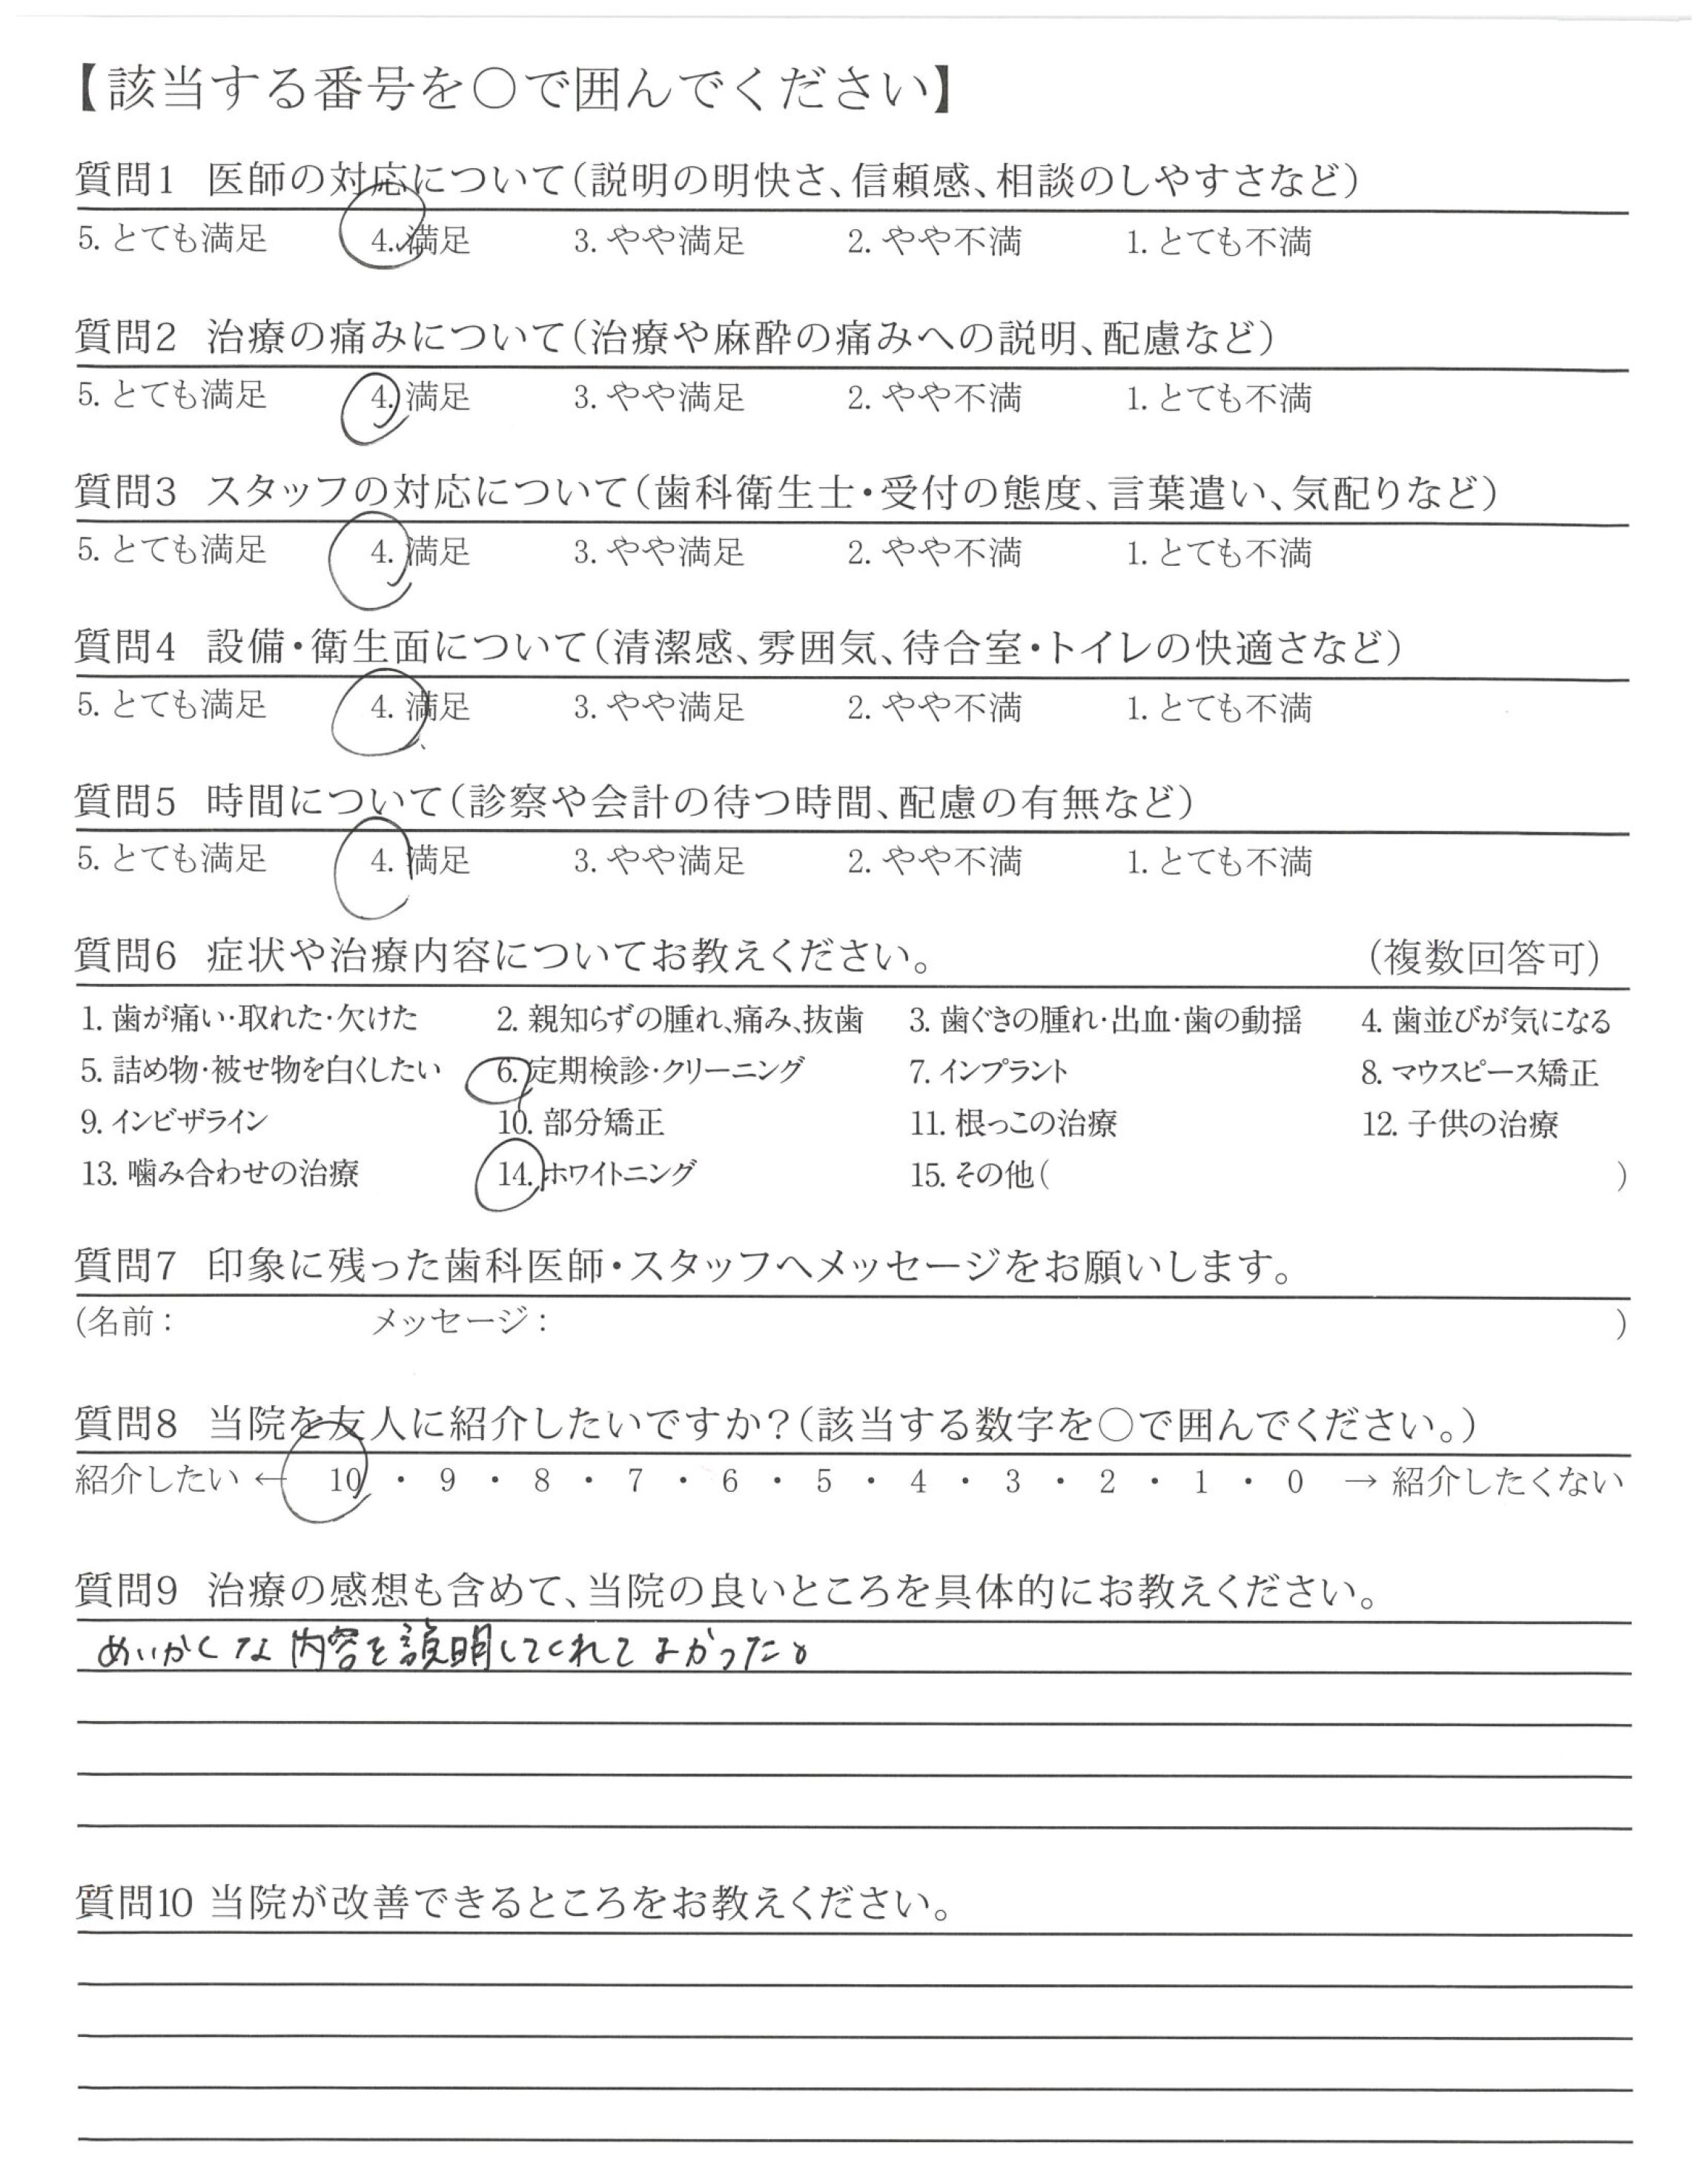 【該当する番号を〇で囲んでください】
質問1 医師の対応について(説明の明快さ、信頼感、相談のしやすさなど)
5. とても満足 4. 満足 3. やや満足 2. やや不満 1. とても不満
質問2 治療の痛みについて(治療や麻酔の痛みへの説明、配慮など)
5. とても満足 4. 満足 3. やや満足 2. やや不満 1. とても不満
質問3 スタッフの対応について(歯科衛生士・受付の態度、言葉遣い、気配りなど)
5. とても満足 4. 満足 3. やや満足 2. やや不満 1. とても不満
質問4 設備・衛生面について(清潔感、雰囲気、待合室・トイレの快適さなど)
5. とても満足 4. 満足 3. やや満足 2. やや不満 1. とても不満
質問5 時間について(診察や会計の待つ時間、配慮の有無など)
5. とても満足 4. 満足 3. やや満足 2. やや不満 1. とても不満
質問6 症状や治療内容についてお教えください。 (複数回答可)
1. 歯が痛い・取れた・欠けた 2. 親知らずの腫れ、痛み、抜歯 3. 歯ぐきの腫れ・出血・歯の動揺 4. 歯並びが気になる
5. 詰め物・被せ物を白くしたい 6. 定期検診・クリーニング 7. インプラント 8. マウスピース矯正
9. インビザライン 10. 部分矯正 11. 根っこの治療 12. 子供の治療
13. 噛み合わせの治療 14. ホワイトニング 15. その他( )
質問7 印象に残った歯科医師・スタッフへメッセージをお願いします。
(名前: メッセージ: )
質問8 当院を友人に紹介したいですか?(該当する数字を〇で囲んでください。)
紹介したい ← 10 ・ 9 ・ 8 ・ 7 ・ 6 ・ 5 ・ 4 ・ 3 ・ 2 ・ 1 ・ 0 → 紹介したくない
質問9 治療の感想も含めて、当院の良いところを具体的にお教えください。
めいかくな内容を説明してくれてよかった。
質問10 当院が改善できるところをお教えください。